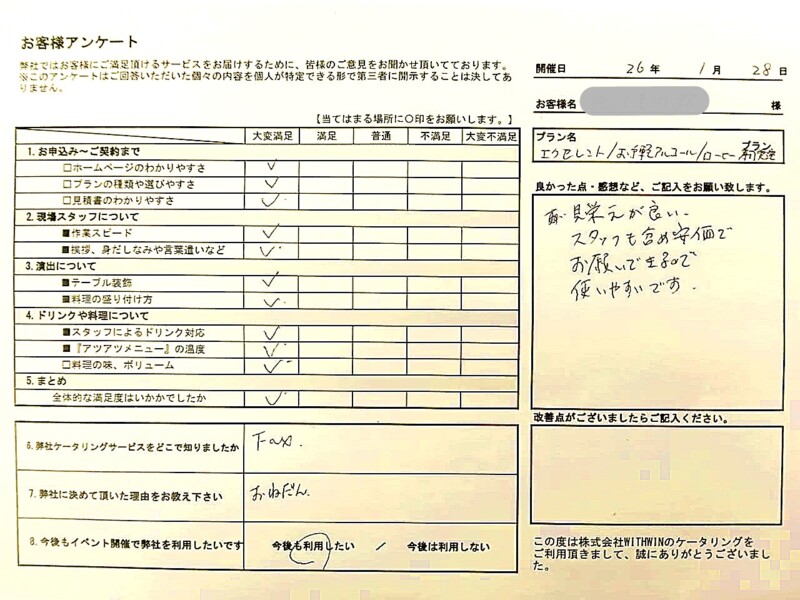 お客様アンケート
弊社ではお客様にご満足頂けるサービスをお届けするために、皆様のご意見をお聞かせ頂いております。
※このアンケートはご回答いただいた個々の内容を個人が特定できる形で第三者に開示することは決してあ
りません。
【当てはまる場所に○印をお願いします。】
大変満足 満足 普通 不満足 大変不満足
1.お申込み～ご契約まで
□ホームページのわかりやすさ ✓
□プランの種類や選びやすさ ✓
□見積書のわかりやすさ ✓
2.現場スタッフについて
■作業スピード ✓
■挨拶、身だしなみや言葉遣いなど ✓
3.演出について
■テーブル装飾 ✓
■料理の盛り付け方 ✓
4.ドリンクや料理について
■スタッフによるドリンク対応 ✓
■『アツアツメニュー』の温度 ✓
□料理の味、ボリューム ✓
5.まとめ
全体的な満足度はいかかでしたか ✓
6.弊社ケータリングサービスをどこで知りましたか Fax.
7.弊社に決めて頂いた理由をお教え下さい おねだん.
8.今後もイベント開催で弊社を利用したいです 今後も利用したい / 今後は利用しない
開催日 26年 1月 28日
お客様名 様
プラン名
エクセレント/お手軽アルコール/コーヒー プラン
良かった点・感想など、ご記入をお願い致します。
見栄えが良い.
スタッフも含め安価で
お願いできるので
使いやすいです.
改善点がございましたらご記入ください。
この度は株式会社WITHWINのケータリングを
ご利用頂きまして、誠にありがとうございまし
た。